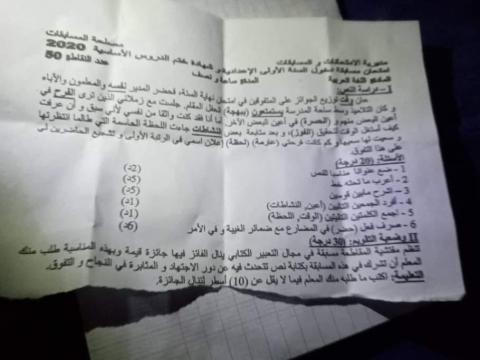 مديرية الامتحانات و المسابقات
مصلحة المسابقات
امتحان مسابقة دخول السنة الأولى الإعدادية و شهادة ختم الدروس الأساسية 2020
المادة: اللغة العربية المدة: ساعة و نصف عدد النقاط 50
I - دراسة النص:
حان وقت توزيع الجوائز على المتفوقين في امتحان نهاية السنة، فحضر المدير نفسه والمعلمون والآباء
و كان التلاميذ وسط ساحة المدرسة يستمتعون (ببهجة) الحفل المقام. جلست مع زملائي الذين ترى الفرح في
أعين البعض منهم و (الحسرة) في أعين البعض الآخر. أما أنا فقد كنت واثقا من نفسي لأني سبق و أن عرفت
كيف أستغل الوقت لتحقيق (الفوز)، و بعد متابعة بعض النشاطات جاءت اللحظة الحاسمة التي طالما انتظرتها
و سعيت لها سعيا و كم كانت فرحتي (عارمة) (لحظة) إعلان اسمي في الرتبة الأولى و تشجيع الحاضرين لي
على هذا التفوق.
الأسئلة: (20 درجة)
1 - ضع عنوانا مناسبا للنص (2د)
2 - أعرب ما تحته خط (5د)
3 - اشرح مابين قوسين (5د)
4 - أفرد الجمعين التاليين (أعين، النشاطات) (1د)
5 - اجمع الكلمتين التاليتين (الوقت، اللحظة) (1د)
6 - صرف فعل (حضر) في المضارع مع ضمائر الغيبة و في الأمر (6د)
II وضعية التقويم: (30 درجة)
تنظم مفتشية المقاطعة مسابقة في مجال التعبير الكتابي ينال الفائز فيها جائزة قيمة وبهذه المناسبة طلب منك
المعلم أن تشترك في هذه المسابقة بكتابة نص تتحدث فيه عن دور الاجتهاد و المثابرة في النجاح و التفوق.
التعليمة: اكتب ما طلبه منك المعلم فيما لا يقل عن (10) أسطر لتنال الجائزة.